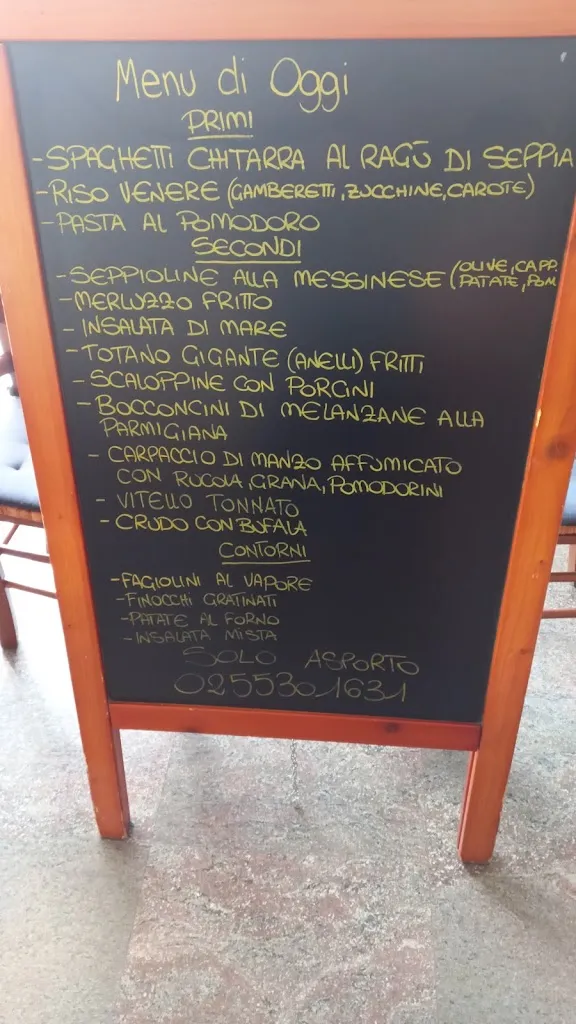 Menu di Oggi
PRIMI
-SPAGHETTI CHITARRA AL RAGÙ DI SEPPIA
-RISO VENERE (GAMBERETTI, ZUCCHINE, CAROTE)
-PASTA AL POMODORO
SECONDI
-SEPPIOLINE ALLA MESSINESE (OLIVE, CAPP.
PATATE, POM
-MERLUZZO FRITTO
- INSALATA DI MARE
-TOTANO GIGANTE (ANELLI) FRITTI
-SCALOPPINE CON PORCINI
- BOCCONCINI DI MELANZANE ALLA
PARMIGIANA
- CARPACCIO DI MANZO AFFUMICATO
CON RUCOLA, GRANA, POMODORINI
- VITELLO TONNATO
- CRUDO CON BUFALA
CONTORNI
-FAGIOLINI AL VAPORE
-FINOCCHI GRATINATI
-PATATE AL FORNO
-INSALATA MISTA
SOLO ASPORTO
0255301631